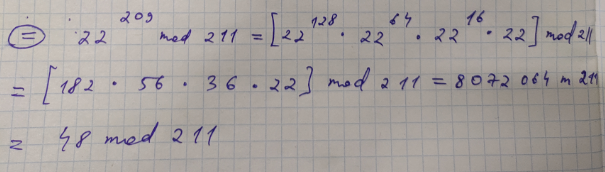 = 22^209 mod 211 = [22^128 · 22^64 · 22^16 · 22] mod 211
= [182 · 56 · 36 · 22] mod 211 = 8072064 m 211
= 48 mod 211